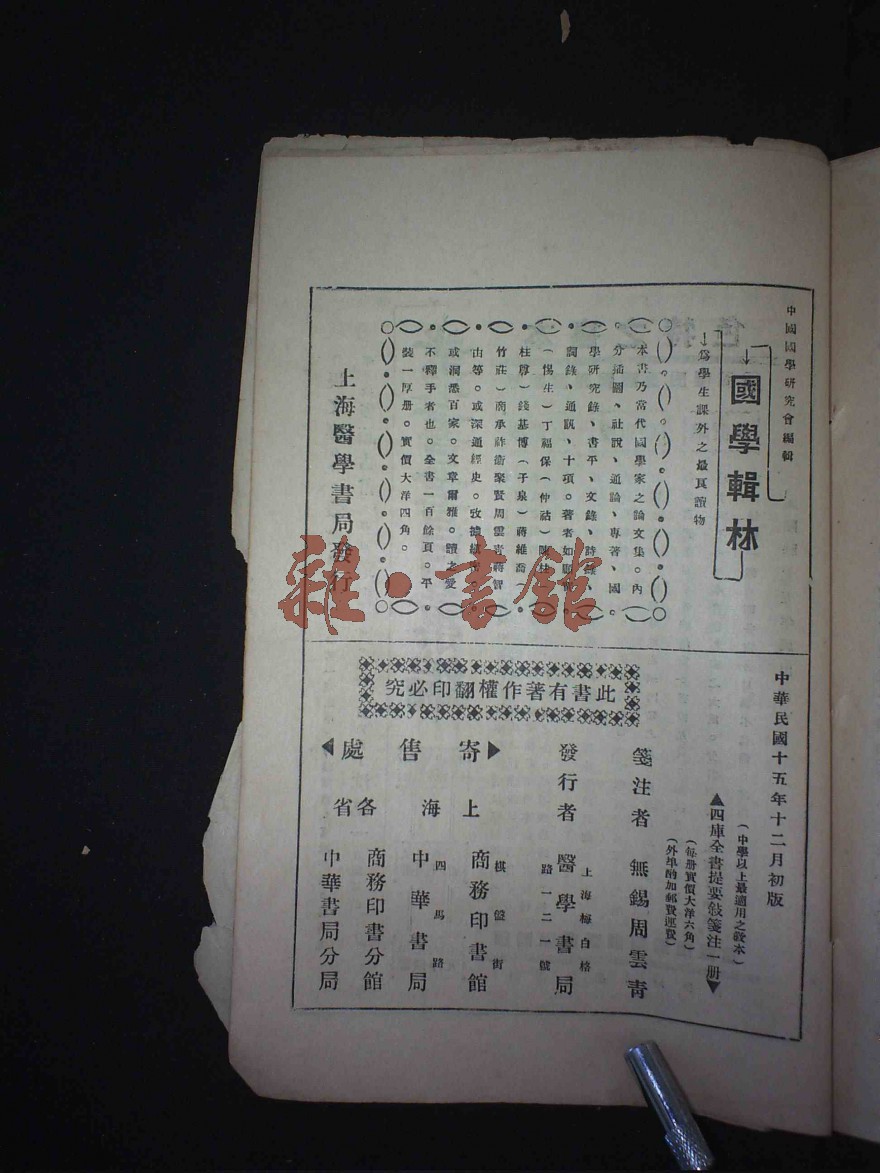 中國國學研究會編輯
國學輯林
爲學生課外之最良讀物
本書乃當代國學家之論文集。內
分插圖、社說、通論、專著、國
學研究錄、書平、文錄、詩錄、
聞錄、通訊、十項。著者如
（惕生）丁福保（仲祜）陳柱
柱尊）錢基博（子泉）蔣維喬（
竹莊）商承祚衛聚賢周雲青蔣智
由等。或深通經史。
或淍悉百家。文章爾雅。讀之愛
不釋手者也。全書一百餘頁。平
裝一厚册。實價大洋四角。
上海醫學書局發行
中華民國十五年十二月初版
（中學以上最適用之教本）
四庫全書提要敍箋注一册
（每册實價大洋六角）
（外埠酌加郵費運費）
此書有著作權翻印必究
箋注者 無錫周雲青
發行者 醫學書局
上海梅白格
路一二一號
寄售處
上海
棋盤街
商務印書館
四馬路
中華書局
各省
商務印書分館
中華書局分局
雜·書館